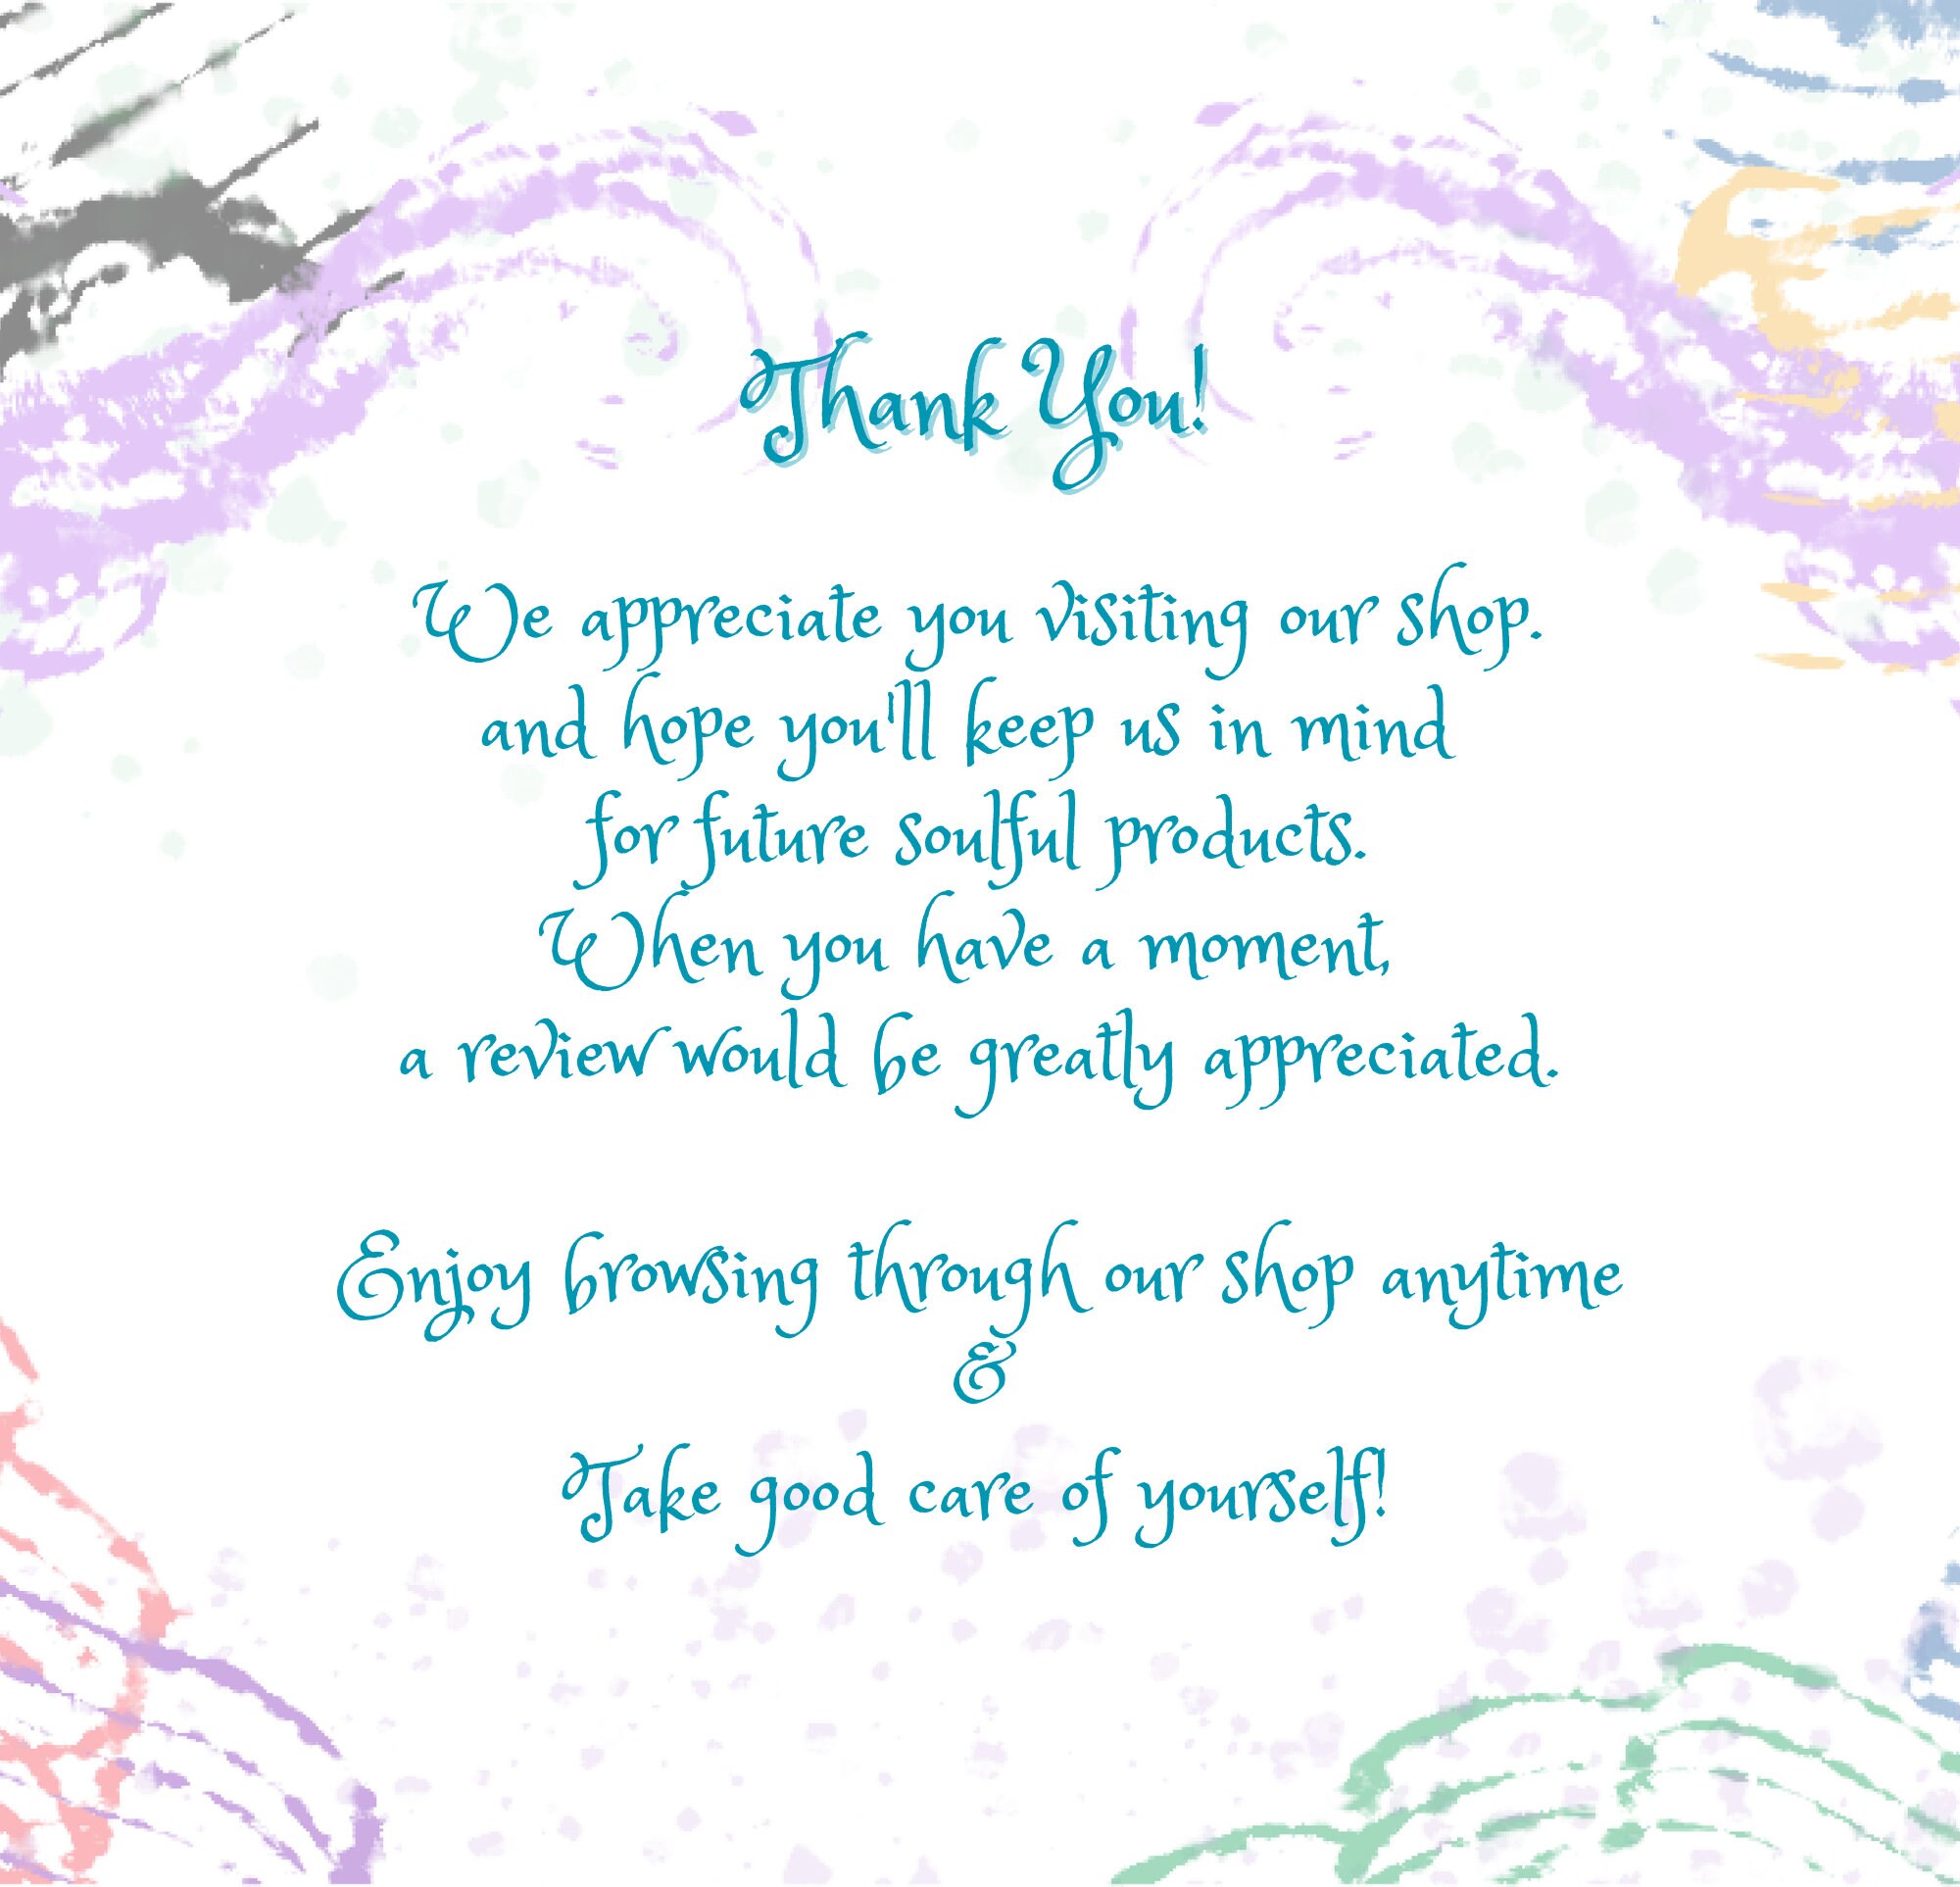 Thank You!
We appreciate you visiting our shop.
and hope you'll keep us in mind
for future soulful products.
When you have a moment,
a review would be greatly appreciated.
Enjoy browsing through our shop anytime
&
Take good care of yourself!